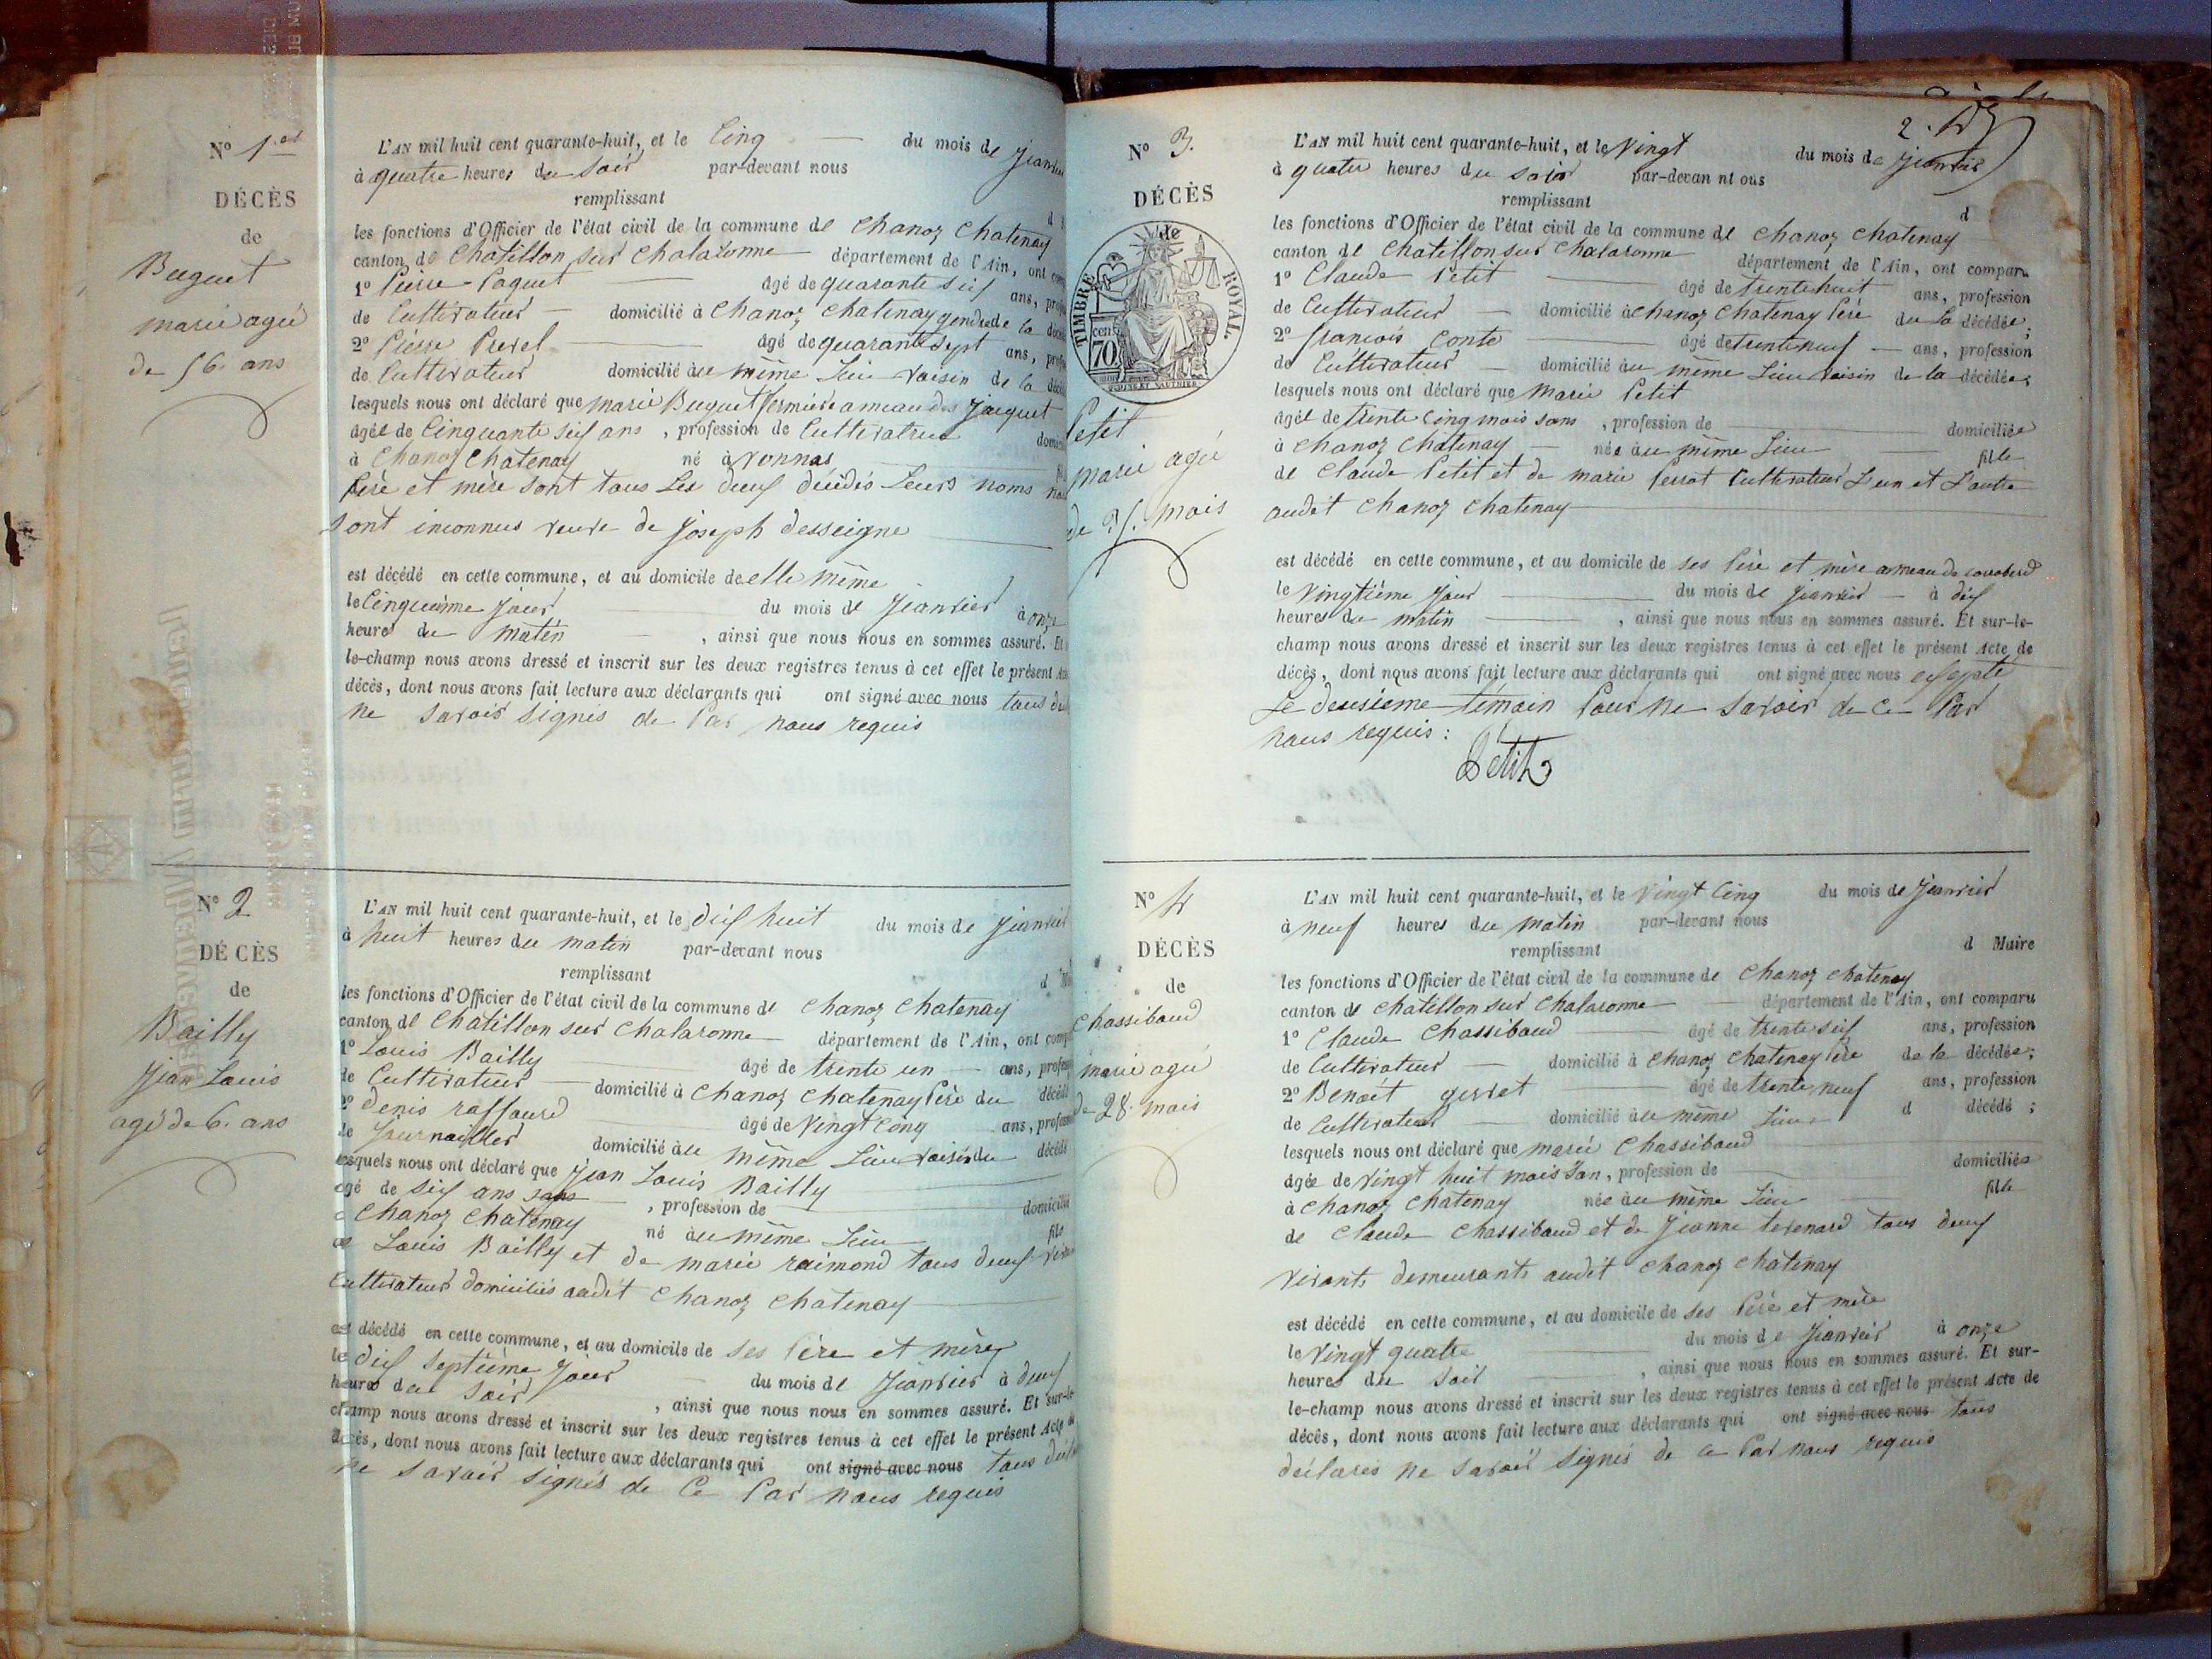 N° 1.er
DÉCÈS
de
Buguet
marie agée
de 56. ans
L'AN mil huit cent quarante-huit, et le Cinq du mois de Jeanvier
à quatre heures du soir par-devant nous
remplissant
les fonctions d'Officier de l'état civil de la commune de Chanoz Chatenay
canton de Chatillon sur Chalaronne département de l'Ain, ont
1° Pierre Paquet âgé de quarante six ans,
de Cultivateur domicilié à Chanoz Chatenay gendre de la
2° Pierre Prevel âgé de quarante sept ans,
de Cultivateur domicilié au même Lieu voisin de la
lesquels nous ont déclaré que marie Buguet fermière ameau des Jacquet
âgée de Cinquante six ans, profession de Cultivatrice
à Chanoz Chatenay né à Vonnas
Père et mère sont tous Les deux décédés Leurs noms nous
sont inconnus veuve de Joseph desseigne
est décédé en cette commune, et au domicile de elle même
le Cinquième Jour du mois de Jeanvier à onze
heures du matin, ainsi que nous nous en sommes assuré. Et
le-champ nous avons dressé et inscrit sur les deux registres tenus à cet effet le présent
décès, dont nous avons fait lecture aux déclarants qui ont signé avec nous tous
ne savoir signés de Par nous requis
N° 2
DÉCÈS
de
Bailly
Jean Louis
agé de 6. ans
L'AN mil huit cent quarante-huit, et le dix huit du mois de Jeanvier
à huit heures du matin par-devant nous
remplissant
les fonctions d'Officier de l'état civil de la commune de Chanoz Chatenay
canton de Chatillon sur Chalaronne département de l'Ain, ont
1° Louis Bailly âgé de trente un ans,
de Cultivateur domicilié à Chanoz Chatenay Père du décédé
2° denis raffourd âgé de Vingt Cinq ans,
de Journailler domicilié au même Lieu voisin du décédé
lesquels nous ont déclaré que Jean Louis Bailly
âgé de six ans sans, profession de domicilié
à Chanoz Chatenay né au même Lieu fils
de Louis Bailly et de marie raimond tous deux
Cultivateur domiciliés audit Chanoz Chatenay
est décédé en cette commune, et au domicile de ses Père et mère
le dix septième Jour du mois de Jeanvier à deux
heures du soir, ainsi que nous nous en sommes assuré. Et sur-le-
champ nous avons dressé et inscrit sur les deux registres tenus à cet effet le présent Acte de
décès, dont nous avons fait lecture aux déclarants qui ont signé avec nous tous
ne savoir signés de Ce Par nous requis
2.
N° 3.
DÉCÈS
de
TIMBRE ROYAL
70 cent
Petit
marie agée
de 35. mois
L'AN mil huit cent quarante-huit, et le Vingt du mois de Jeanvier
à quatre heures du soir par-devan nt ous
remplissant
d
les fonctions d'Officier de l'état civil de la commune de Chanoz Chatenay
canton de Chatillon sur Chalaronne département de l'Ain, ont comparu
1° Claude Petit âgé de trente huit ans, profession
de Cultivateur domicilié à Chanoz Chatenay Père de la décédée;
2° francois Conte âgé de trente neuf ans, profession
de Cultivateur domicilié au même Lieu voisin de la décédée;
lesquels nous ont déclaré que Marie Petit
âgée de trente Cinq mois sans, profession de domiciliée
à Chanoz Chatenay née au même Lieu fille
de Claude Petit et de marie Perrot Cultivateur L'un et L'autre
audit Chanoz Chatenay
est décédé en cette commune, et au domicile de ses Père et mère ameau de
le Vingtième Jour du mois de Jeanvier à dix
heures du matin, ainsi que nous nous en sommes assuré. Et sur-le-
champ nous avons dressé et inscrit sur les deux registres tenus à cet effet le présent Acte de
décès, dont nous avons fait lecture aux déclarants qui ont signé avec nous excepté
Le deuxième témoin Pour ne savoir de Ce Par
nous requis:
Petit
N° 4
DÉCÈS
de
Chassibaud
marie agée
de 28. mois
L'AN mil huit cent quarante-huit, et le Vingt Cinq du mois de Jeanvier
à neuf heures du matin par-devant nous
remplissant
d Maire
les fonctions d'Officier de l'état civil de la commune de Chanoz Chatenay
canton de Chatillon sur Chalaronne département de l'Ain, ont comparu
1° Claude Chassibaud âgé de trente six ans, profession
de Cultivateur domicilié à Chanoz Chatenay Père de la décédée;
2° Benoit gerret âgé de trente neuf ans, profession
de Cultivateur domicilié au même Lieu d décédé;
lesquels nous ont déclaré que marie Chassibaud
âgée de Vingt huit mois san, profession de domiciliée
à Chanoz Chatenay née au même Lieu fille
de Claude Chassibaud et de Jeanne terenard tous deux
vivants demeurants audit Chanoz Chatenay
est décédé en cette commune, et au domicile de ses Père et mère
le Vingt quatre du mois de Jeanvier à onze
heures du soir, ainsi que nous nous en sommes assuré. Et sur-
le-champ nous avons dressé et inscrit sur les deux registres tenus à cet effet le présent Acte de
décès, dont nous avons fait lecture aux déclarants qui ont signé avec nous tous
déclarés ne savoir signés de Ce Par nous requis